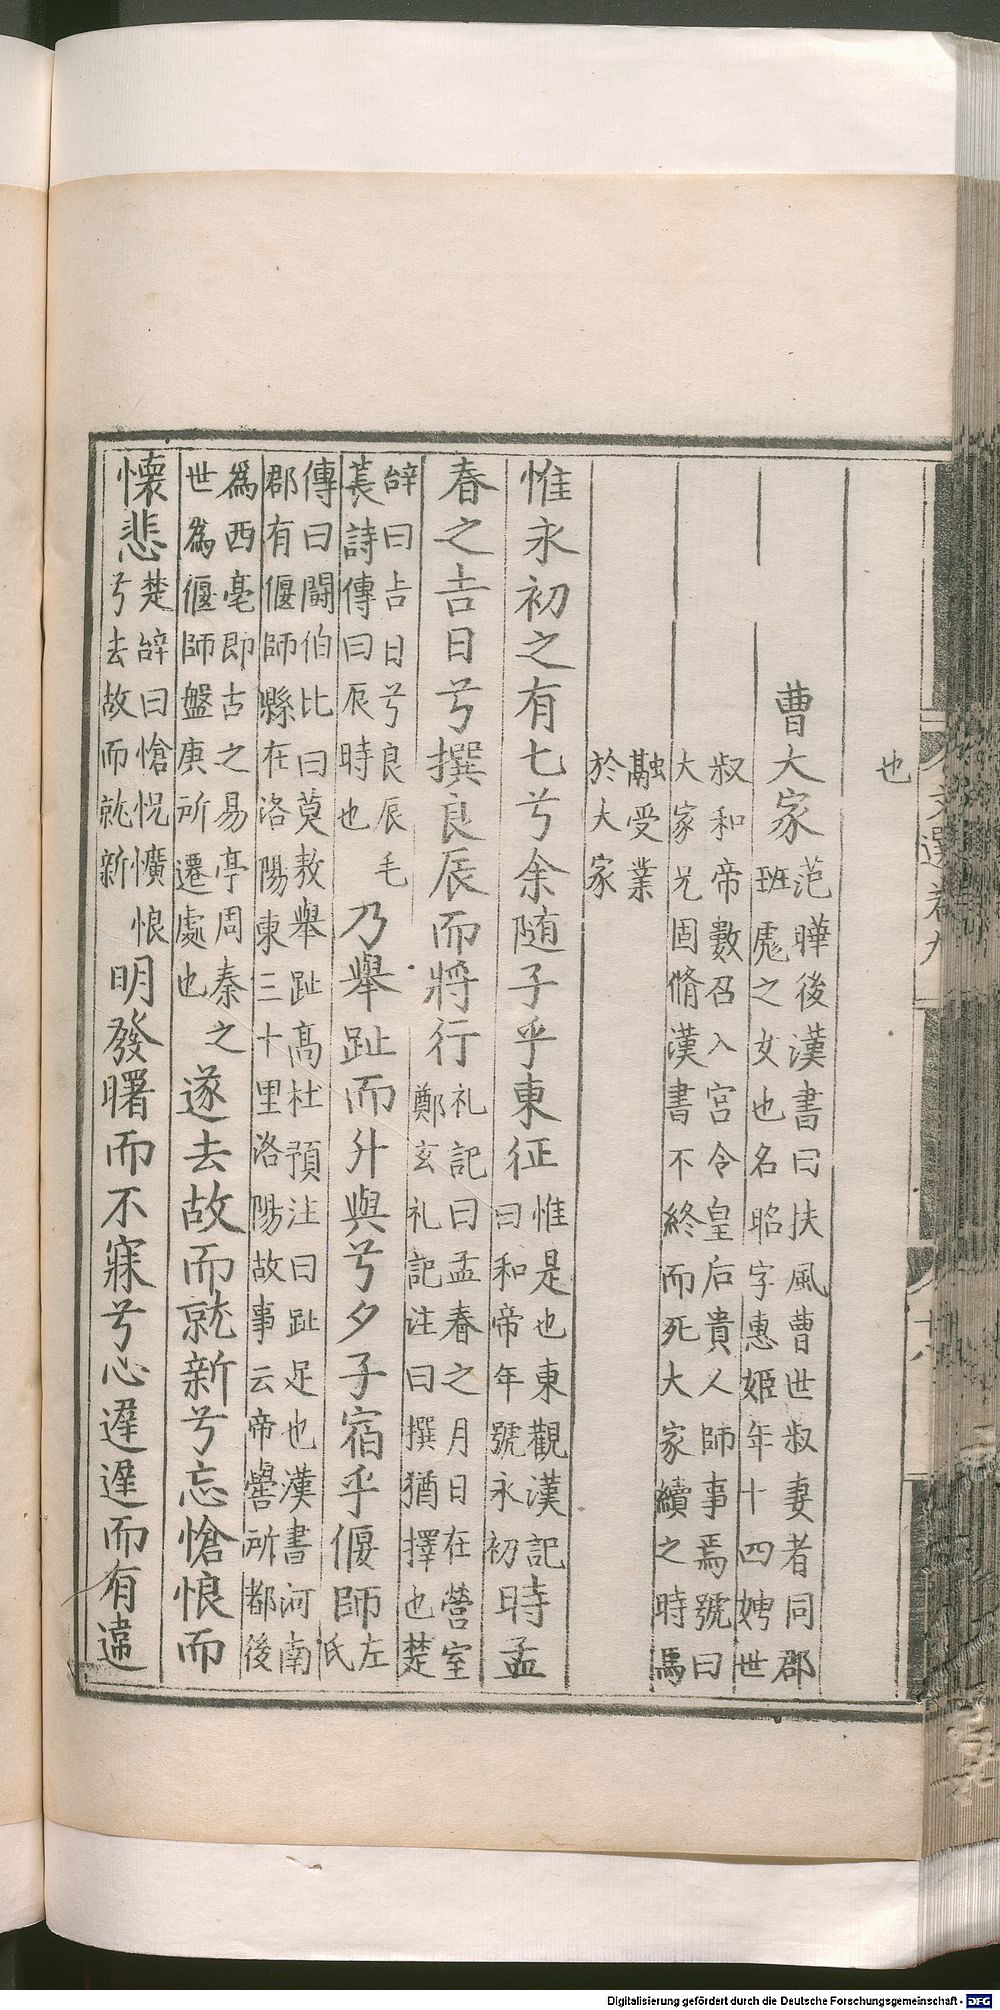 文選卷九
十八
也
曹大家
范曄後漢書曰扶風曹世叔妻者同郡
班彪之女也名昭字惠姬年十四娉世
叔和帝數召入宮令皇后貴人師事焉號曰
大家兄固脩漢書不終而死大家續之時馬
融受業
於大家
惟永初之有七兮余随子乎東征
惟是也東觀漢記
曰和帝年號永初
時孟
春之吉日兮撰良辰而將行
礼記曰孟春之月日在營室
鄭玄礼記注曰撰猶擇也楚
辭曰吉日兮良辰毛
萇詩傳曰辰時也
乃舉趾而升與兮夕子宿乎偃師
左
氏
傳曰闘伯比曰莫敖舉趾高杜預注曰趾足也漢書河南
郡有偃師縣在洛陽東三十里洛陽故事云帝嚳所都後
爲西亳即古之易亭周秦之
世爲偃師盤庚所遷處也
遂去故而就新兮忘愴悢而
懷悲
楚辭曰愴怳懭悢
兮去故而就新
明發曙而不寐兮心遲遲而有違
Digitalisierung gefördert durch die Deutsche Forschungsgemeinschaft - DFG